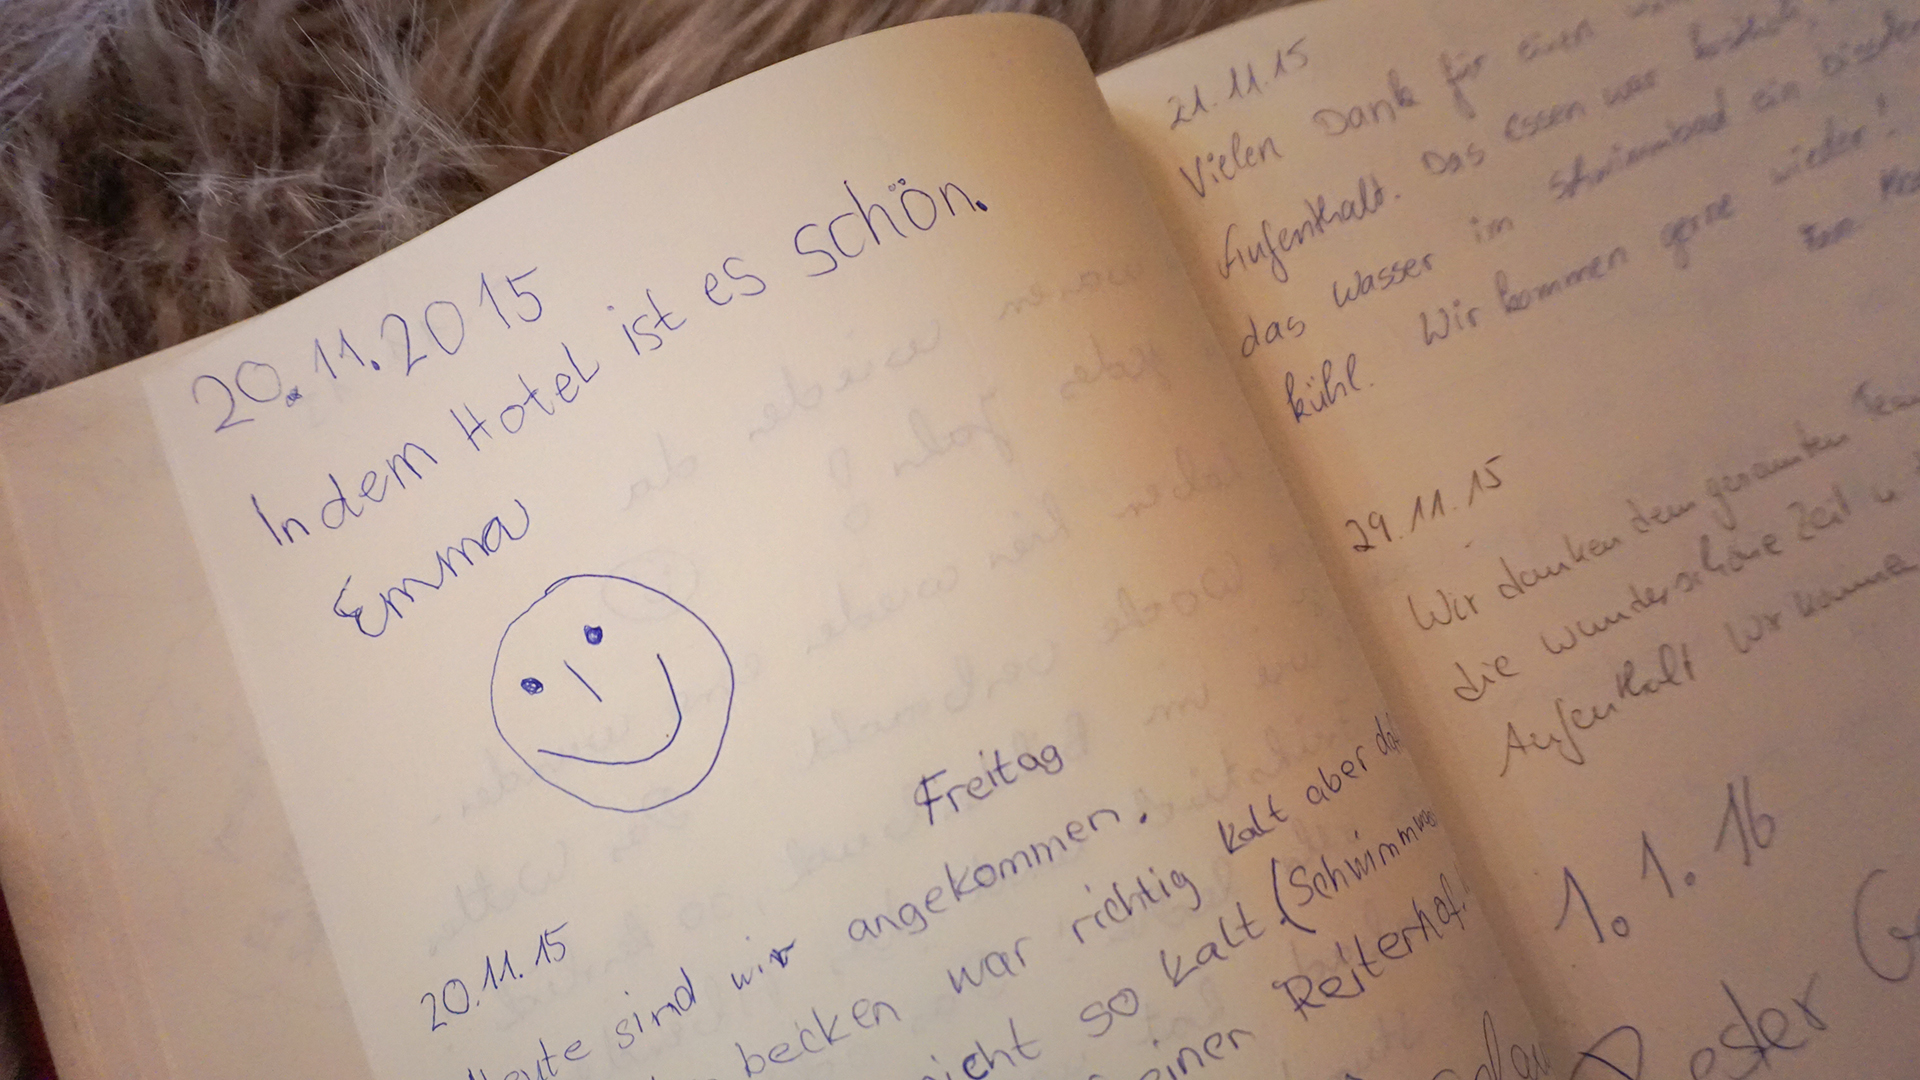 20.11.2015
In dem Hotel ist es schön.
Emma
Freitag
20.11.15
Heute sind wir angekommen.
becken war richtig kalt aber
nicht so kalt. (Schwimm
einen Reiterhof!
21.11.15
Vielen Dank für einen
Aufenthalt. Das essen war
das Wasser im ein
kühl. Wir kommen gerne wieder!
29.11.15
Wir danken dem gesamten
die wunderschöne Zeit u.
Aufenthalt Wir kommen
1.1.16